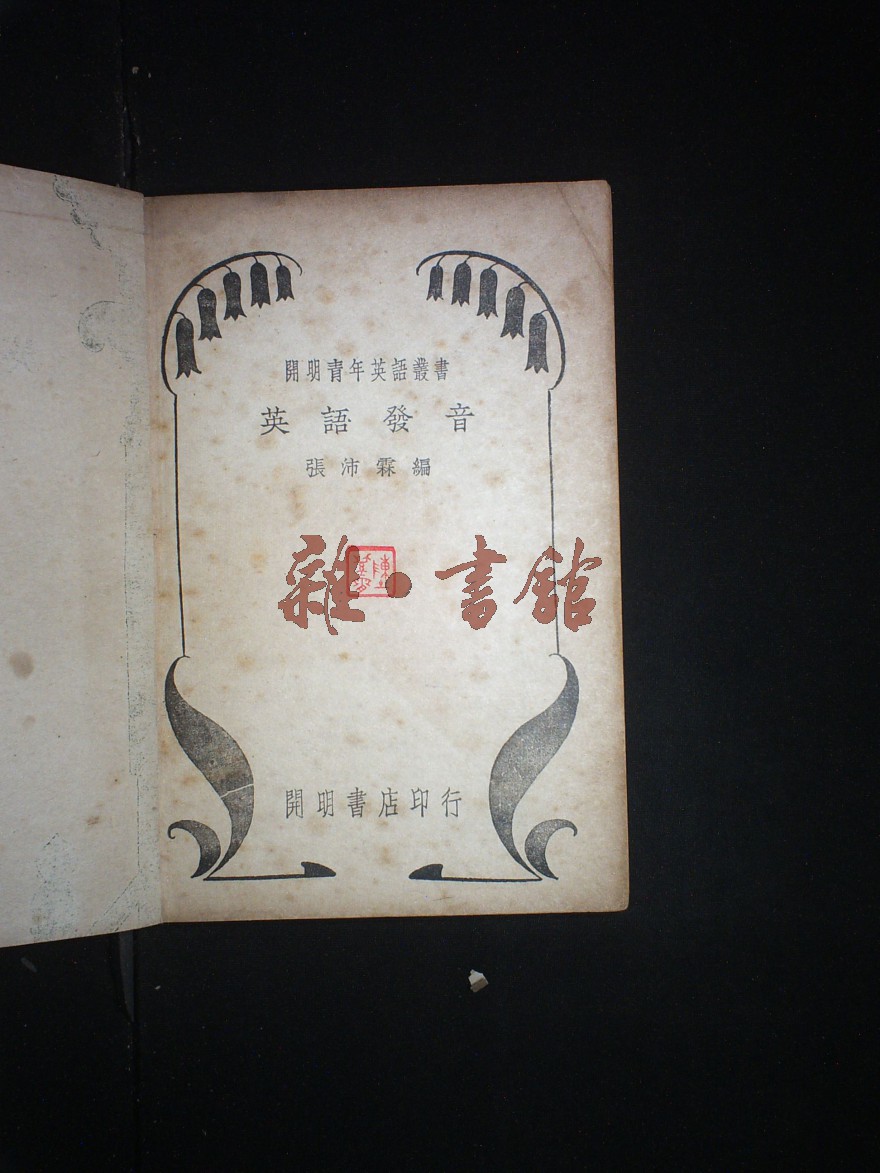 開明青年英語叢書
英語發音
張沛霖編
雜·書館
開明書店印行